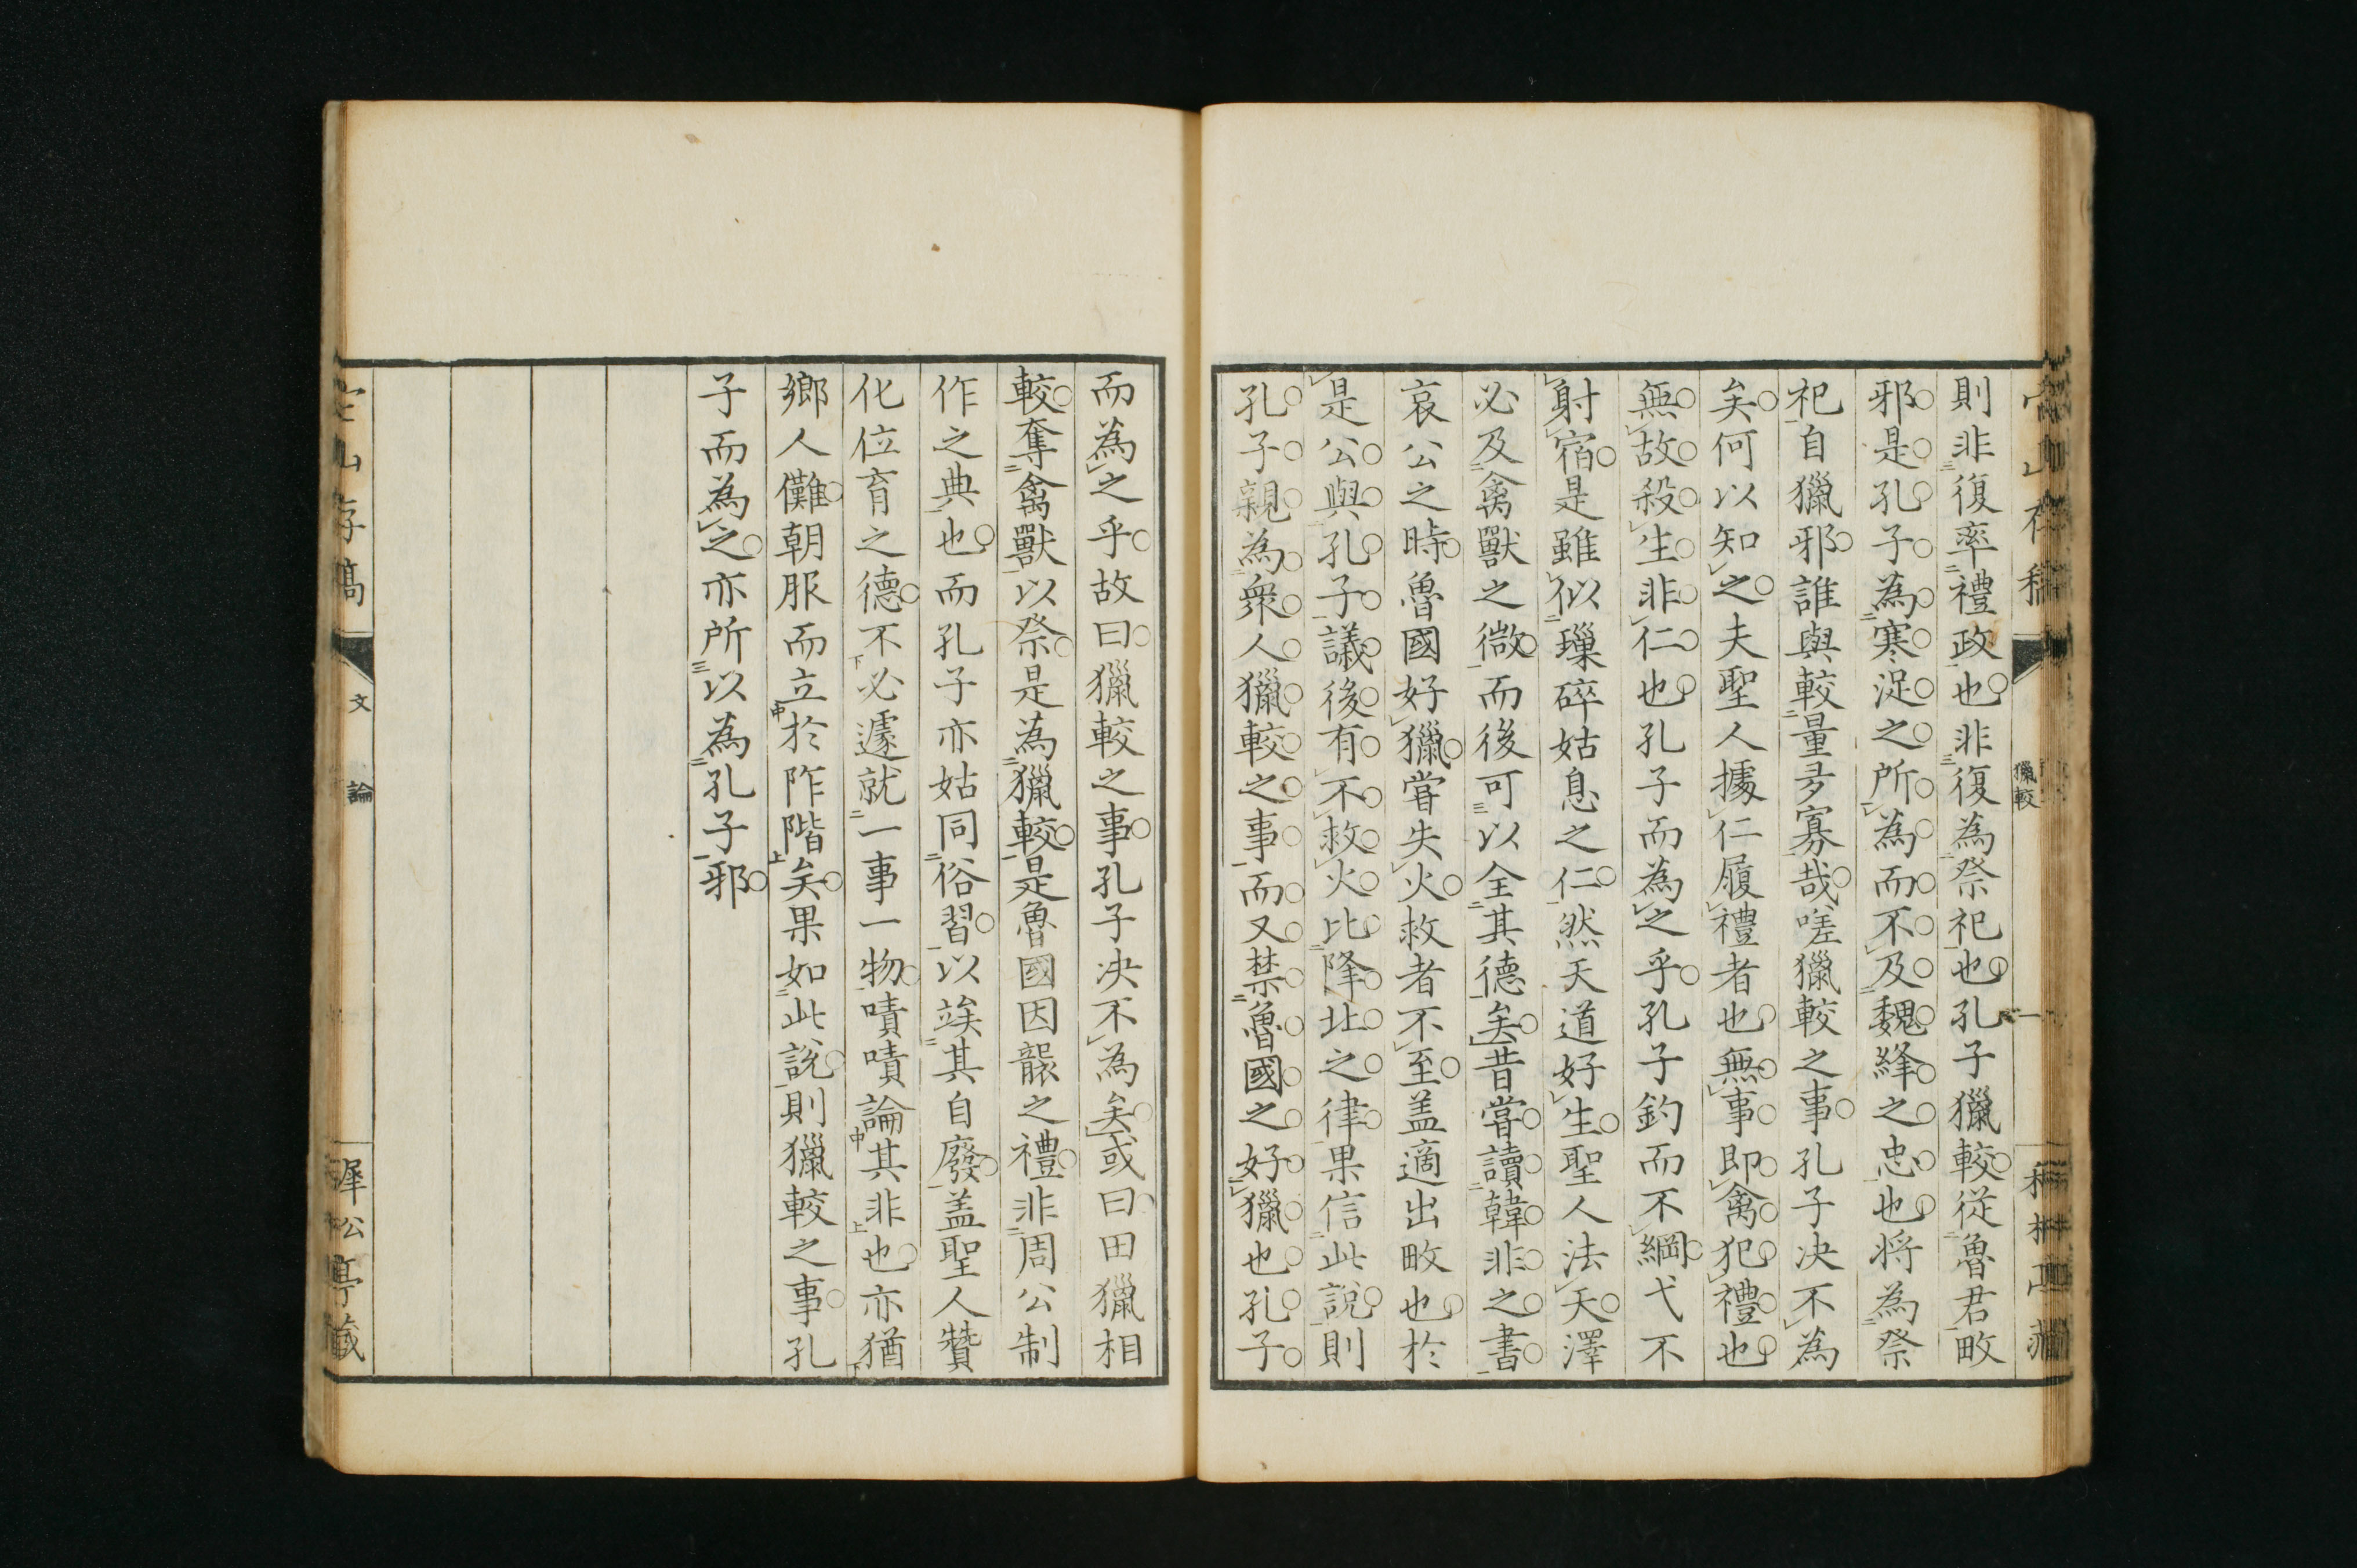 獵較
則非復率禮政也非復為祭祀也孔子獵較從魯君畋
邪是孔子為寒浞之所為而不及魏絳之忠也將為祭
祀自獵邪誰與較量多寡哉嗟獵較之事孔子决不為
矣何以知之夫聖人據仁履禮者也無事即禽犯禮也
無故殺生非仁也孔子而為之乎孔子釣而不綱弋不
射宿是雖似璅碎姑息之仁然天道好生聖人法天澤
必及禽獸之微而後可以全其德矣昔嘗讀韓非之書
哀公之時魯國好獵嘗失火救者不至盖適出畋也於
是公與孔子議後有不救火比降北之律果信此說則
孔子親為衆人獵較之事而又禁魯國之好獵也孔子
而為之乎故曰獵較之事孔子决不為矣或曰田獵相
較奪禽獸以祭是為獵較是魯國因襲之禮非周公制
作之典也而孔子亦姑同俗習以竢其自廢盖聖人贊
化位育之德不必遽就一事一物嘖嘖論其非也亦猶
鄉人儺朝服而立於阼階矣果如此說則獵較之事孔
子而為之亦所以為孔子邪
山存稿
文
論
犀松亭藏